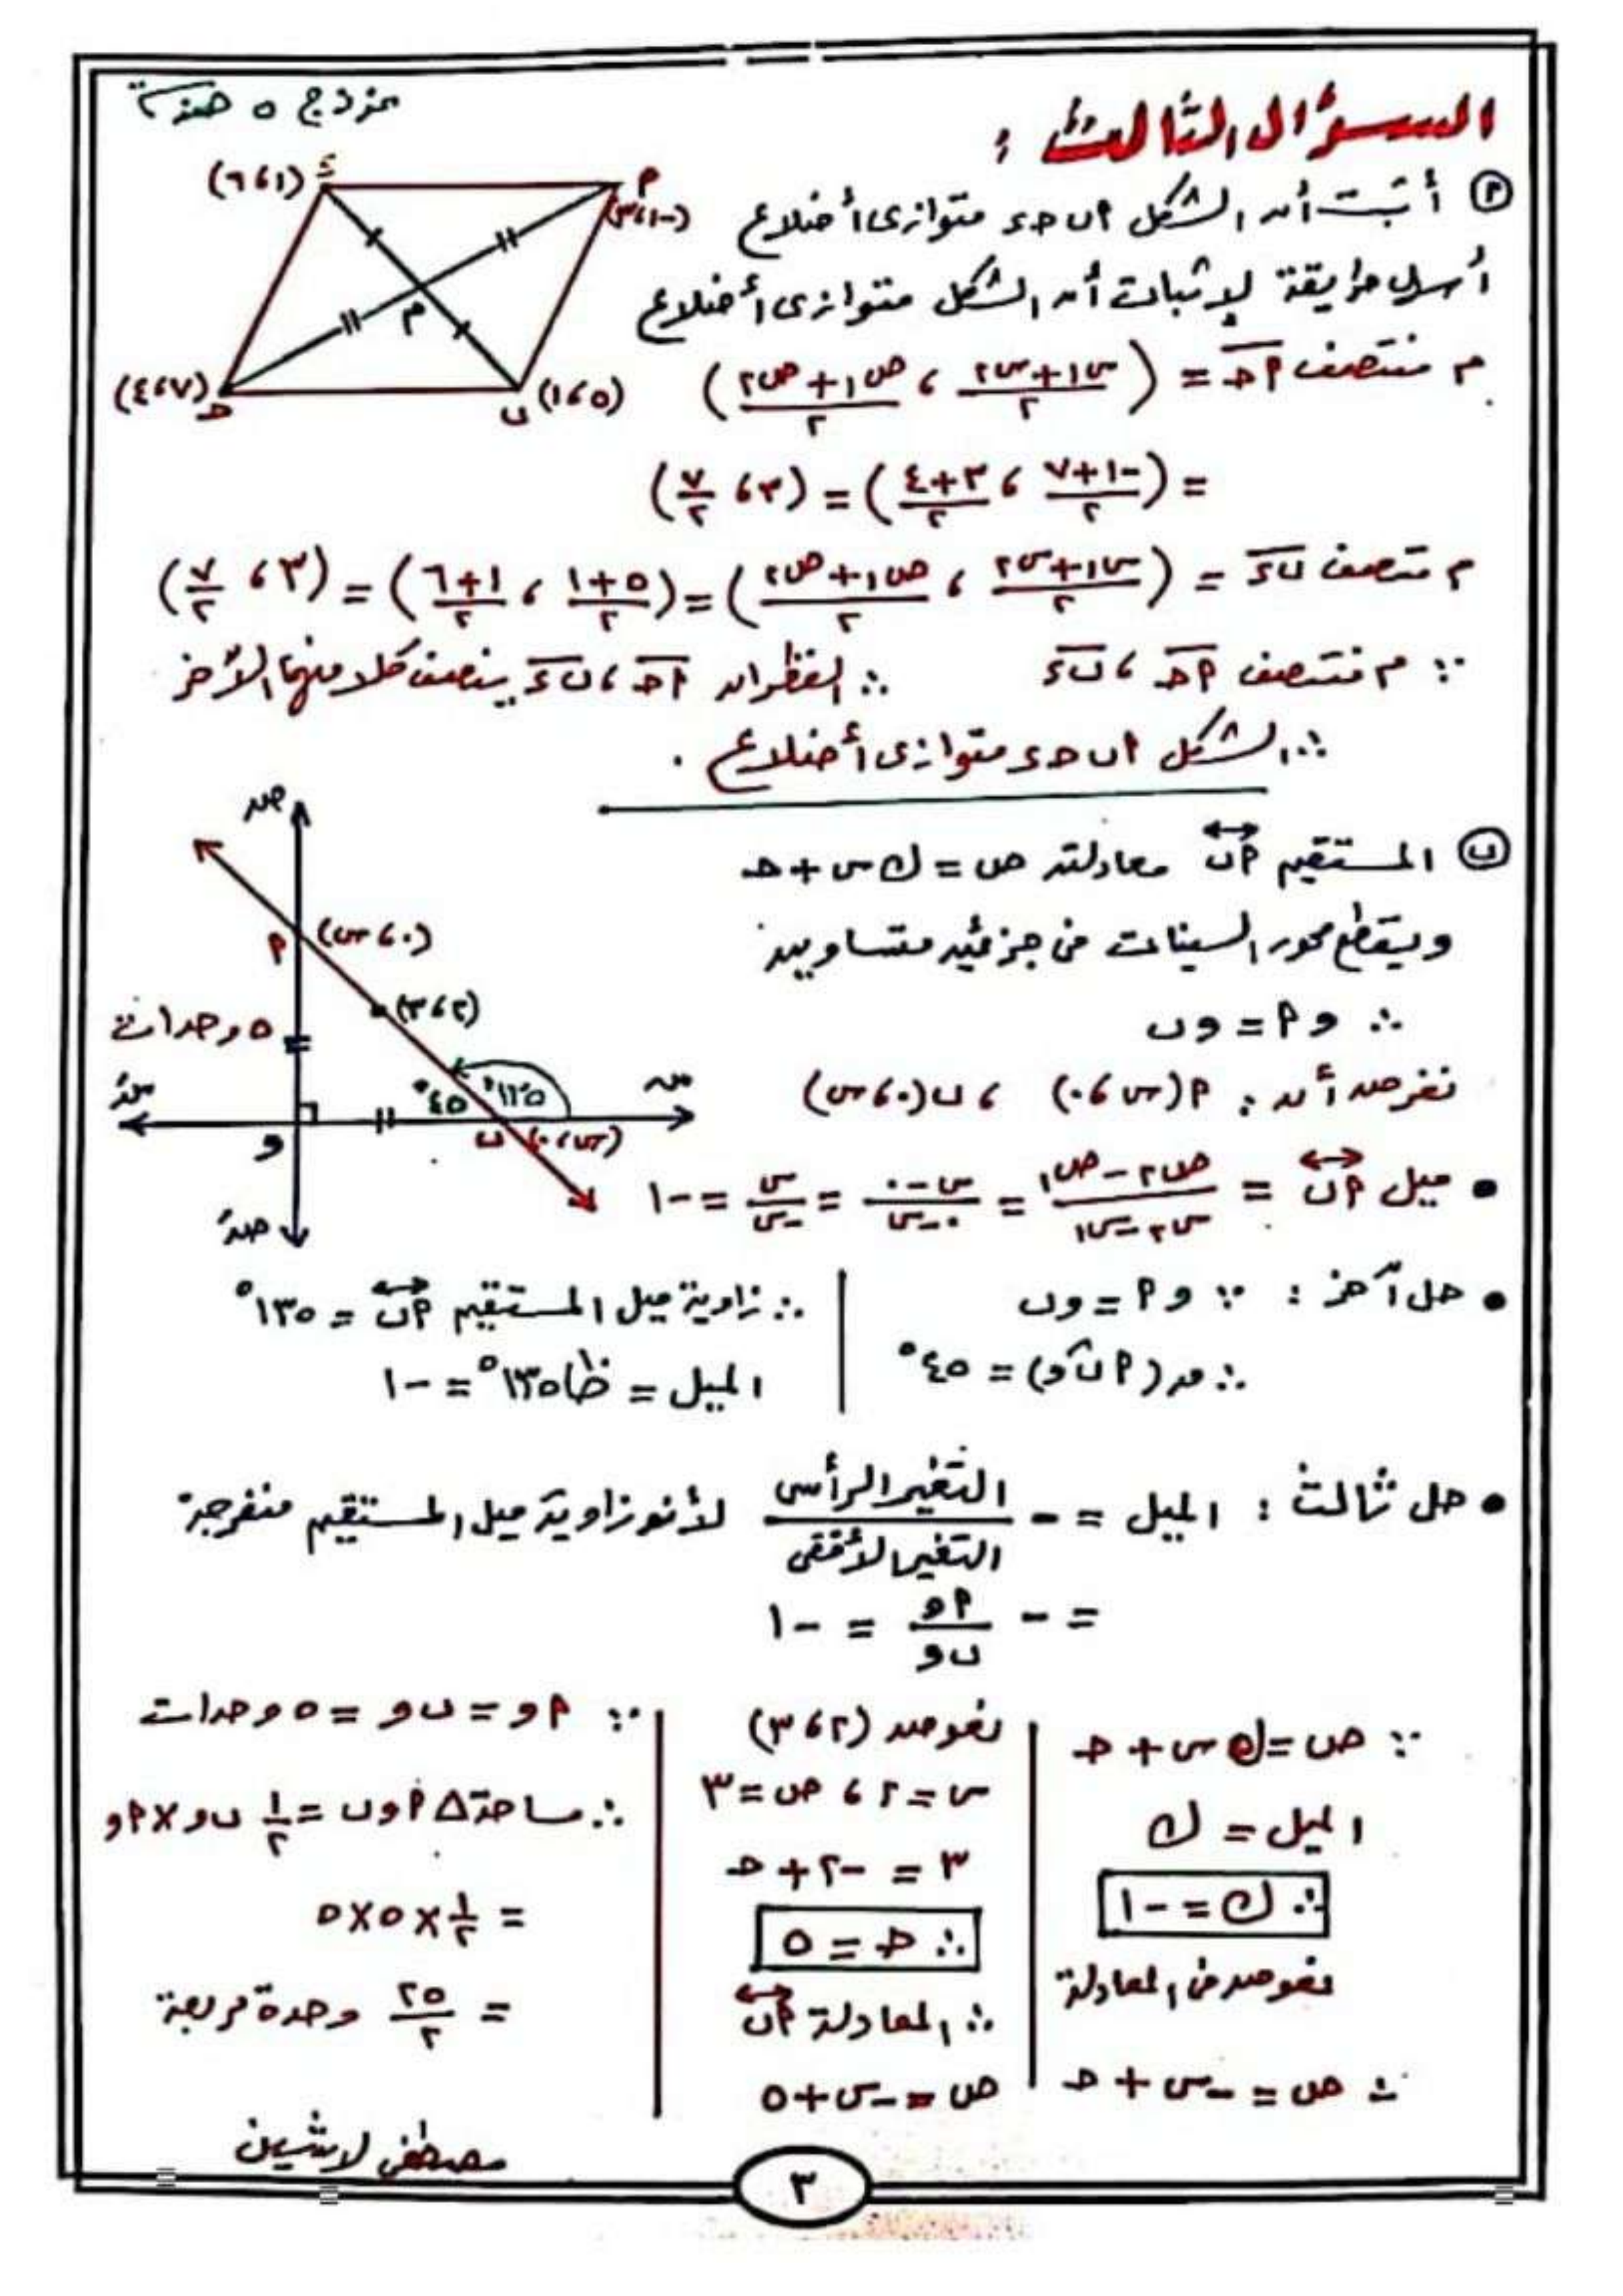 نموذج ٥ هندسة
السؤال الثالث :
(١، ٦) ء
أ (-١، ٣)
م
(٧، ٤) جـ
ب (٥، ١)
أ) أثبت أن الشكل أ ب جـ ء متوازى أضلاع
أسهل طريقة لإثبات أن الشكل متوازى أضلاع
م منتصف أجـ = (س١+س٢/٢ ، ص١+ص٢/٢)
= (-١+٧/٢ ، ٣+٤/٢) = (٣، ٧/٢)
م منتصف بء = (س١+س٢/٢ ، ص١+ص٢/٢) = (٥+١/٢ ، ١+٦/٢) = (٣، ٧/٢)
∵ م منتصف أجـ ، بء ∴ القطران أجـ ، بء ينصف كلا منهما الآخر
∴ الشكل أ ب جـ ء متوازى أضلاع .
ب) المستقيم أب معادلته ص = ك س + جـ
ويقطع محور السينات من جزئين متساويين
∴ و أ = و ب
نفرض أن : أ (س، ٠) ، ب (٠، س)
ص
أ (٠، س)
(٢، ٣)
٥ وحدات
١٣٥° ٤٥°
س
سَ
و
ب (س، ٠)
صَ
• ميل أب = ص٢-ص١/س٢-س١ = س-٠/٠-س = س/-س = -١
• حل آخر : ∵ و أ = و ب
∴ ق(أ ب و) = ٤٥°
∴ زاوية ميل المستقيم أب = ١٣٥°
الميل = ظا ١٣٥° = -١
• حل ثالث : الميل = - التغير الرأسى/التغير الأفقى لأن زاوية ميل المستقيم منفرجة
= - أو/ب و = -١
∵ ص = ك س + جـ
الميل = ك
∴ ك = -١
نعوض فى المعادلة
∴ ص = -س + جـ
نعوض (٢، ٣)
س = ٢ ، ص = ٣
٣ = -٢ + جـ
∴ جـ = ٥
∴ المعادلة أب
ص = -س + ٥
∵ أ و = ب و = ٥ وحدات
∴ مساحة Δ أ و ب = ١/٢ ب و × أ و
= ١/٢ × ٥ × ٥
= ٢٥/٢ وحدة مربعة
مصطفى لاشين
٣